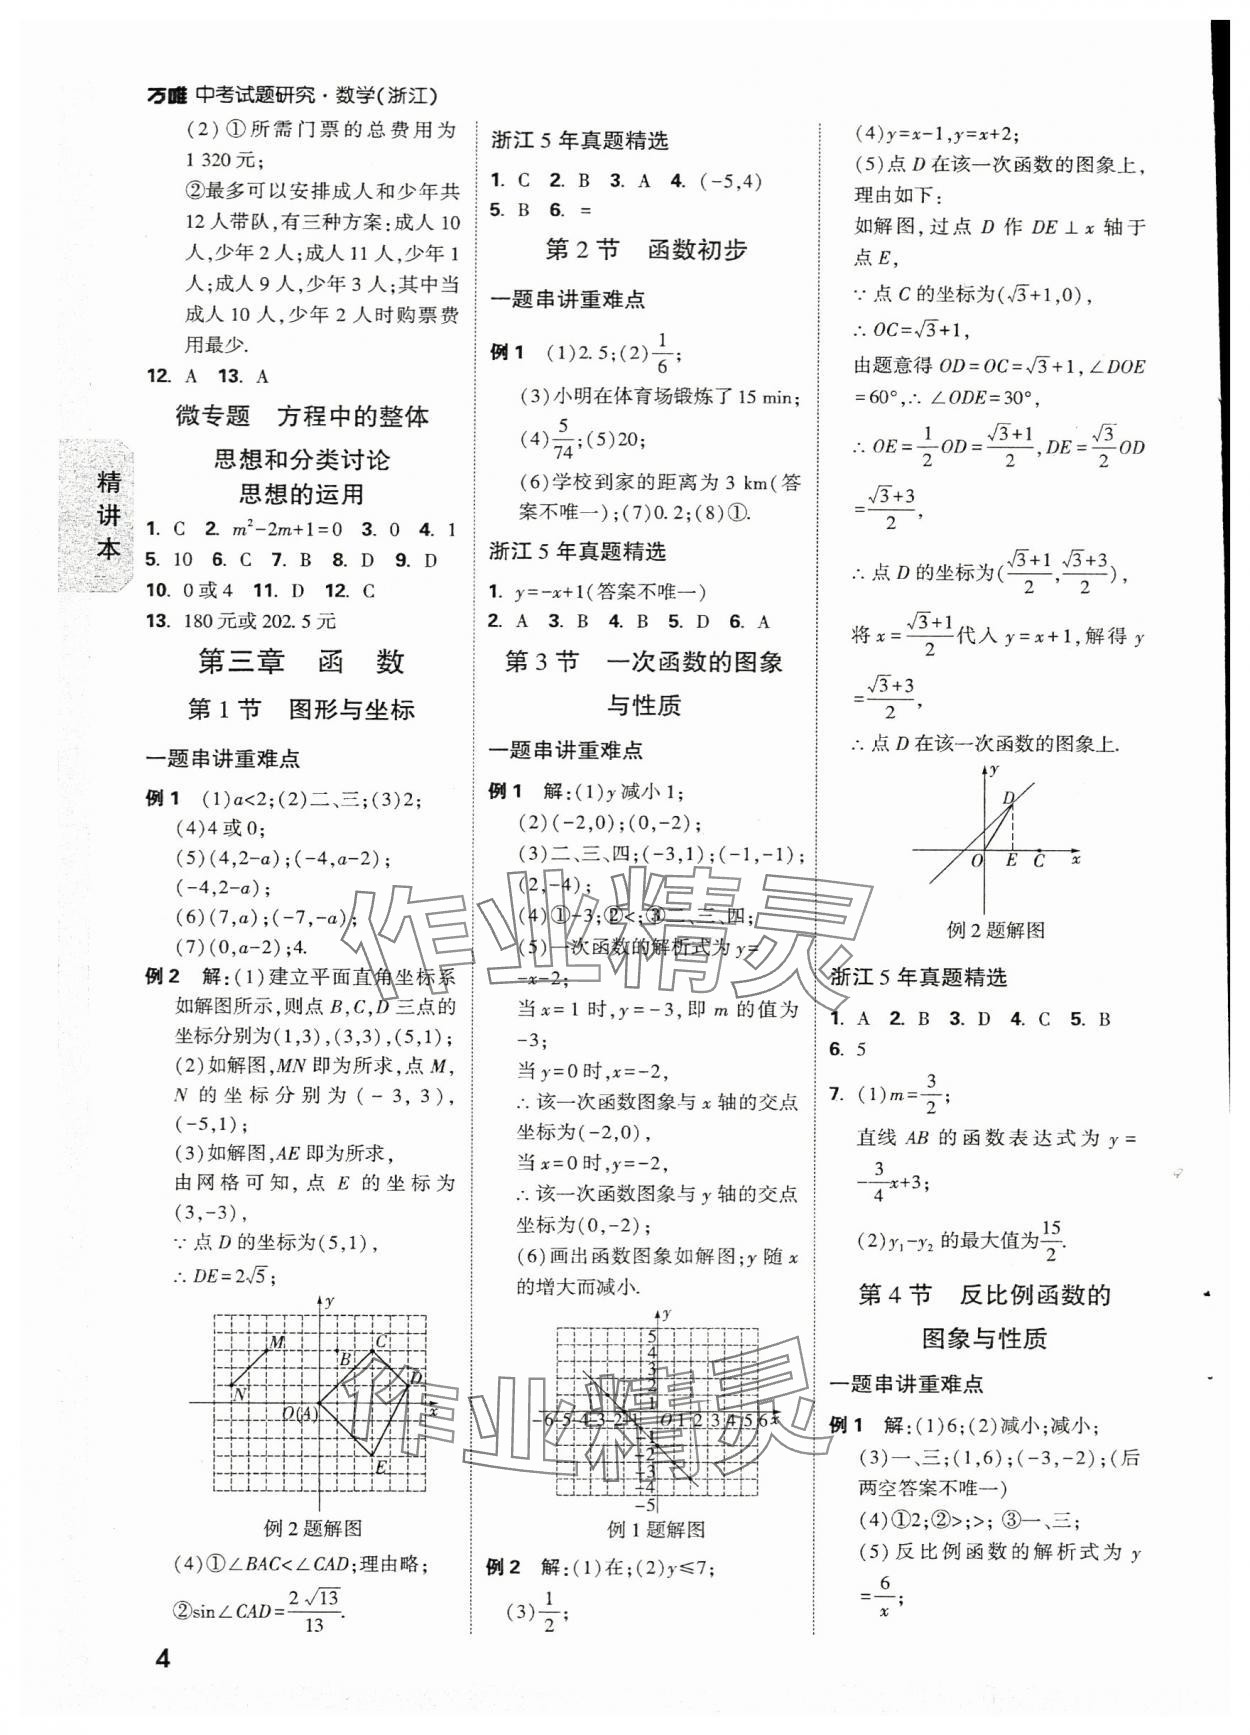 万唯 中考试题研究·数学(浙江)
(2)①所需门票的总费用为
1 320元;
②最多可以安排成人和少年共
12人带队,有三种方案:成人10
人,少年2人;成人11人,少年1
人;成人9人,少年3人;其中当
成人10人,少年2人时购票费
用最少.
12. A 13. A
微专题 方程中的整体
思想和分类讨论
思想的运用
1. C 2. m²-2m+1=0 3. 0 4. 1
5. 10 6. C 7. B 8. D 9. D
10. 0或4 11. D 12. C
13. 180元或202.5元
第三章 函 数
第1节 图形与坐标
一题串讲重难点
例1 (1)a<2;(2)二、三;(3)2;
(4)4或0;
(5)(4,2-a);(-4,a-2);
(-4,2-a);
(6)(7,a);(-7,-a);
(7)(0,a-2);4.
例2 解:(1)建立平面直角坐标系
如解图所示,则点B,C,D三点的
坐标分别为(1,3),(3,3),(5,1);
(2)如解图,MN即为所求,点M,
N的坐标分别为(-3,3),
(-5,1);
(3)如解图,AE即为所求,
由网格可知,点E的坐标为
(3,-3),
∵点D的坐标为(5,1),
∴DE=2√5;
y
M
B
C
N
D
O(A)
x
E
例2题解图
(4)①∠BAC<∠CAD;理由略;
②sin∠CAD=2√13/13.
4
浙江5年真题精选
1. C 2. B 3. A 4. (-5,4)
5. B 6. =
第2节 函数初步
一题串讲重难点
例1 (1)2.5;(2)1/6;
(3)小明在体育场锻炼了15 min;
(4)5/74;(5)20;
(6)学校到家的距离为3 km(答
案不唯一);(7)0.2;(8)①.
浙江5年真题精选
1. y=-x+1(答案不唯一)
2. A 3. B 4. B 5. D 6. A
第3节 一次函数的图象
与性质
一题串讲重难点
例1 解:(1)y减小1;
(2)(-2,0);(0,-2);
(3)二、三、四;(-3,1);(-1,-1);
(2,-4);
(4)①-3;②<;③二、三、四;
(5)一次函数的解析式为y=
-x-2;
当x=1时,y=-3,即m的值为
-3;
当y=0时,x=-2,
∴该一次函数图象与x轴的交点
坐标为(-2,0),
当x=0时,y=-2,
∴该一次函数图象与y轴的交点
坐标为(0,-2);
(6)画出函数图象如解图;y随x
的增大而减小.
y
5
4
3
2
1
-6-5-4-3-2-1 O 1 2 3 4 5 6 x
-1
-2
-3
-4
-5
例1题解图
例2 解:(1)在;(2)y≤7;
(3)1/2;
(4)y=x-1,y=x+2;
(5)点D在该一次函数的图象上,
理由如下:
如解图,过点D作DE⊥x轴于
点E,
∵点C的坐标为(√3+1,0),
∴OC=√3+1,
由题意得OD=OC=√3+1,∠DOE
=60°,∴∠ODE=30°,
∴OE=1/2OD=(√3+1)/2,DE=√3/2OD
=(√3+3)/2,
∴点D的坐标为((√3+1)/2,(√3+3)/2),
将x=(√3+1)/2代入y=x+1,解得y
=(√3+3)/2,
∴点D在该一次函数的图象上.
y
D
O E C x
例2题解图
浙江5年真题精选
1. A 2. B 3. D 4. C 5. B
6. 5
7. (1)m=3/2;
直线AB的函数表达式为y=
-3/4x+3;
(2)y₁-y₂的最大值为15/2.
第4节 反比例函数的
图象与性质
一题串讲重难点
例1 解:(1)6;(2)减小;减小;
(3)一、三;(1,6);(-3,-2);(后
两空答案不唯一)
(4)①2;②>;>;③一、三;
(5)反比例函数的解析式为y
=6/x;
精讲本
作业精灵
作业精灵